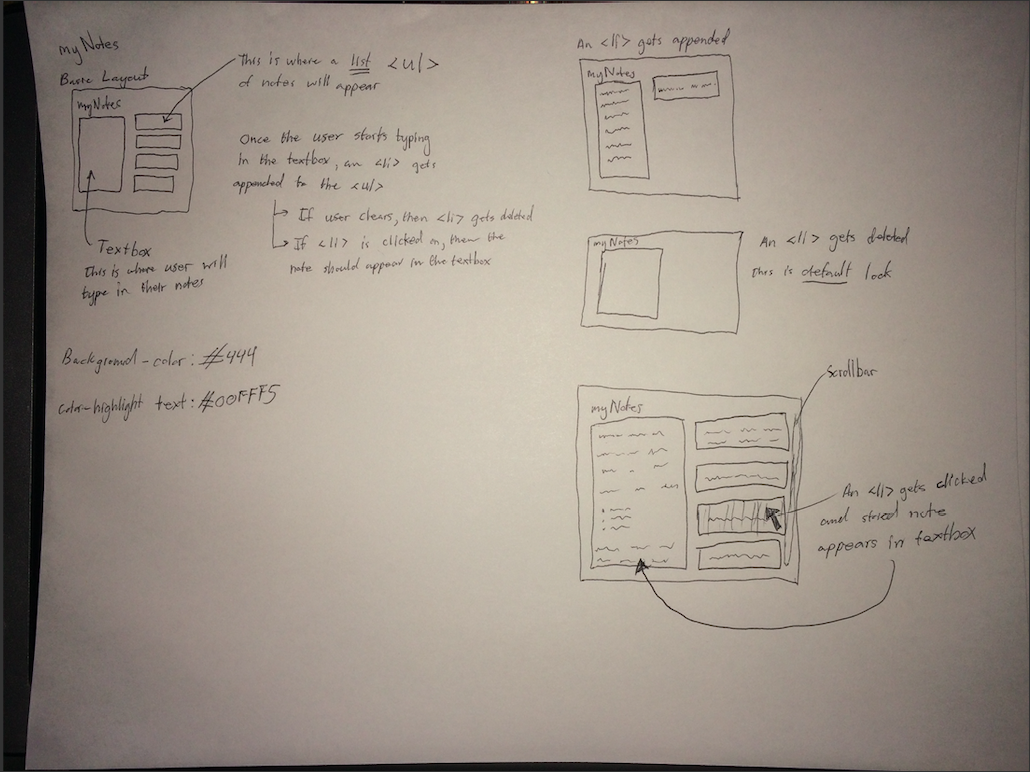 myNotes
Basic Layout
myNotes
This is where a list <ul>
of notes will appear
Once the user starts typing
in the textbox, an <li> gets
appended to the <ul>
If user clears, then <li> gets deleted
If <li> is clicked on, then the
note should appear in the textbox
Textbox
This is where user will
type in their notes
Background-color: #444
color-highlight text: #00FFF5
An <li> gets appended
myNotes
myNotes
An <li> gets deleted
this is default look
Scrollbar
myNotes
An <li> gets clicked
and stored note
appears in textbox